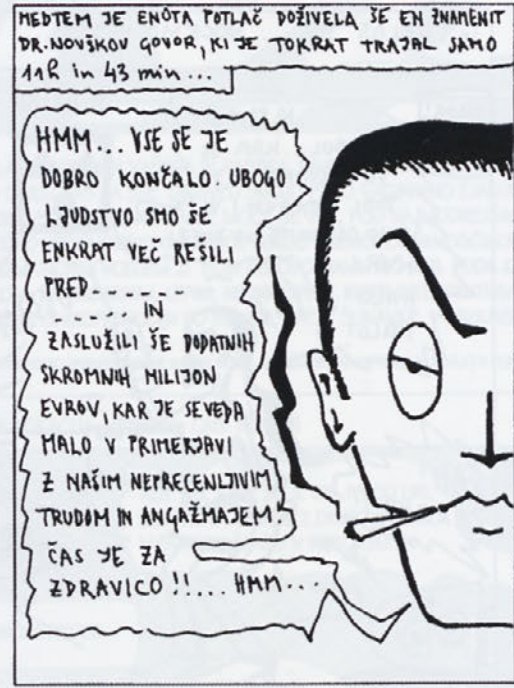 MEDTEM JE ENOTA POTLAČ DOŽIVELA ŠE EN ZNAMENIT
DR. NOVŠKOV GOVOR, KI JE TOKRAT TRAJAL SAMO
11h in 43 min...
HMM... VSE SE JE
DOBRO KONČALO. UBOGO
LJUDSTVO SMO ŠE
ENKRAT VEČ REŠILI
PRED.......
....... IN
ZASLUŽILI ŠE DODATNIH
SKROMNIH MILIJON
EVROV, KAR JE SEVEDA
MALO V PRIMERJAVI
Z NAŠIM NEPRECENLJIVIM
TRUDOM IN ANGAŽMAJEM!
ČAS JE ZA
ZDRAVICO !!... HMM...